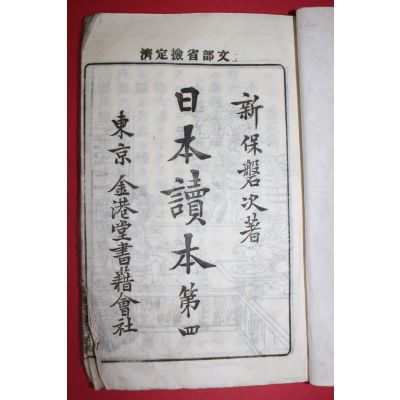 文部省檢定濟
新保磐次著
日本讀本第四
東京金港堂書藉會社